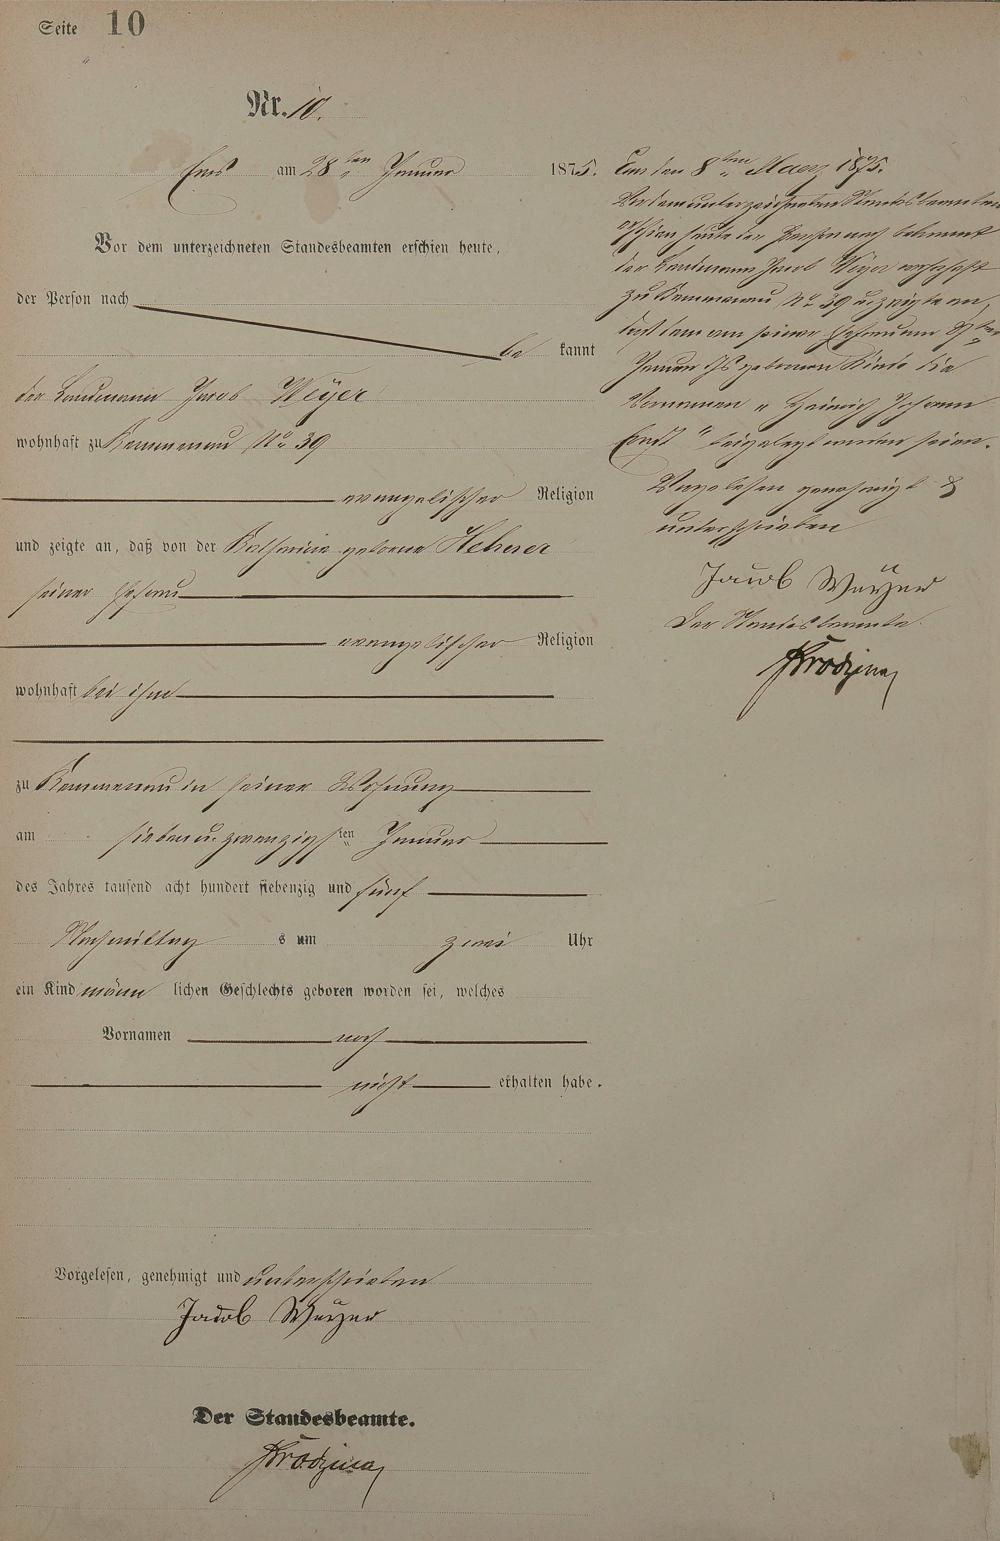 Seite 10
Nr. 10.
Ems am 28ten Januar 1875.
Vor dem unterzeichneten Standesbeamten erschien heute,
der Person nach
be kannt
der Landmann Jacob Weyer
wohnhaft zu Kemmenau No 39
evangelischer Religion
und zeigte an, daß von der Katharine geborne Hehner
seiner Ehefrau
evangelischer Religion
wohnhaft bei ihm
zu Kemmenau in seiner Wohnung
am sieben u. zwanzigsten Januar
des Jahres tausend acht hundert siebenzig und fünf
Nachmittag s um zwei Uhr
ein Kind männ lichen Geschlechts geboren worden sei, welches
Vornamen noch
nicht erhalten habe.
Vorgelesen, genehmigt und unterschrieben
Jacob Weyer
Der Standesbeamte.
Ems den 8ten Maerz 1875.
Vor dem unterzeichneten Standesbeamten
erschien heute der Person nach bekannt
der Landmann Jacob Weyer wohnhaft
zu Kemmenau No 39 u. zeigte an,
daß dem von seiner Ehefrau am 27ten
Januar geborenen Kinde die
Vornamen „ Heinrich Johann
Ernst " beigelegt worden seien.
Vorgelesen genehmigt &
unterschrieben
Jacob Weyer
Der Standesbeamte.